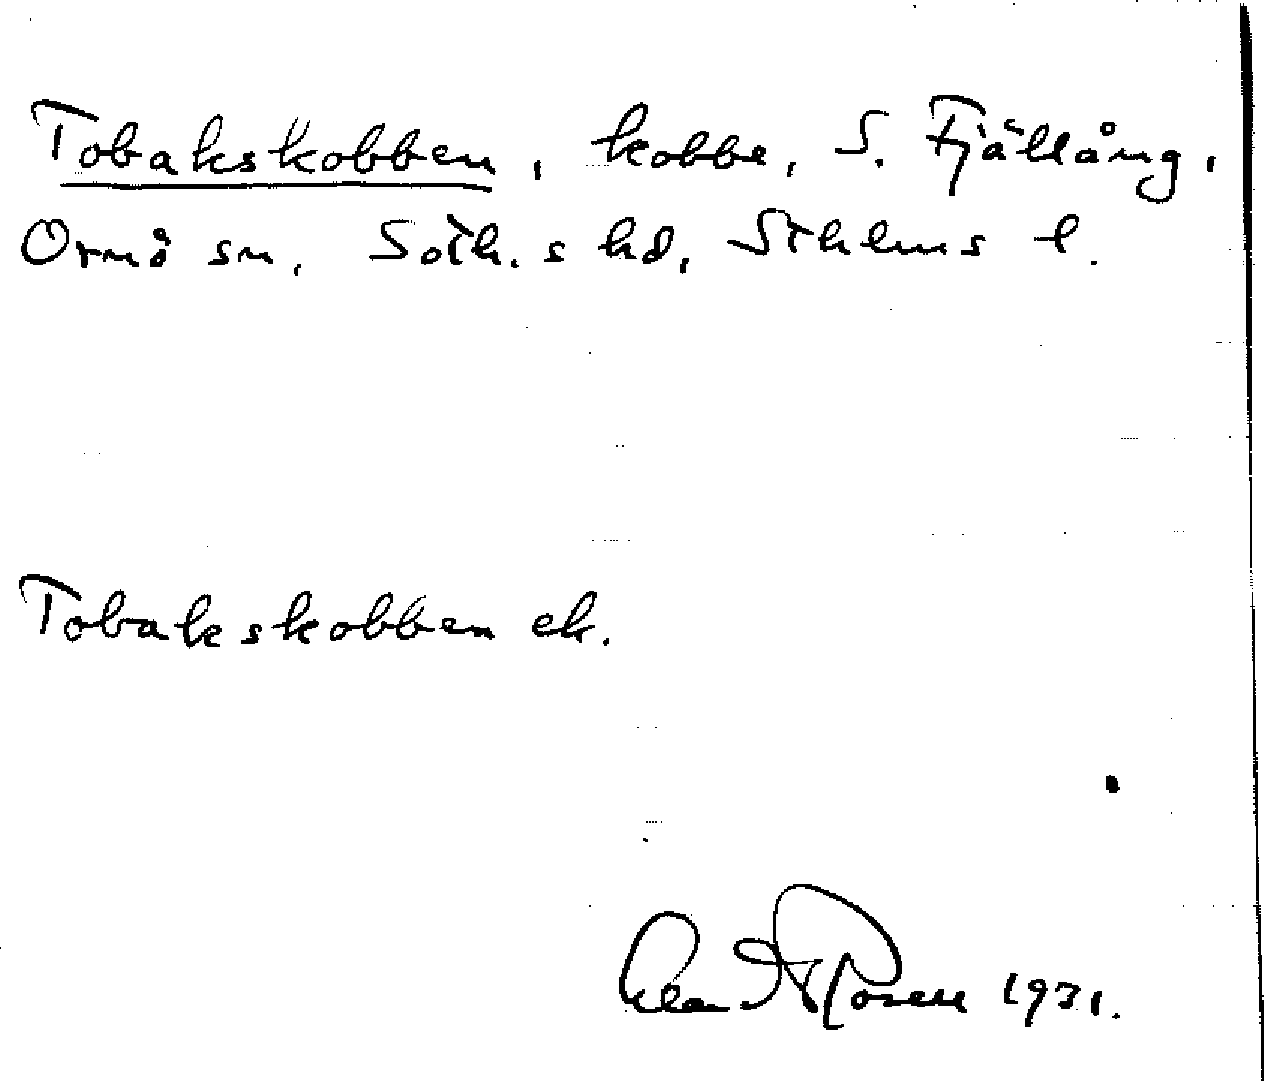 Tobakskobben, kobbe, S. Fjällång,
Ornö sn, Soth.s hd, Sthlms l.
Tobakskobben ek.
Rosell 1931.